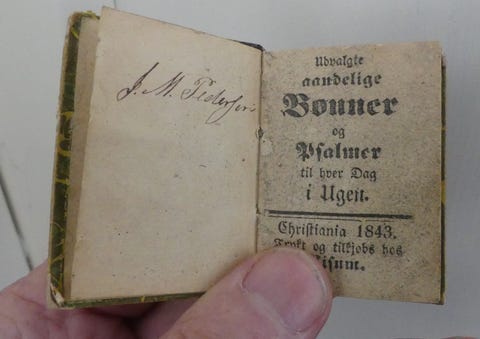 J. M. Pedersen
Udvalgte
aandelige
Bønner
og
Psalmer
til hver Dag
i Ugen.
Christiania 1843.
Trykt og tilkjøbs hos